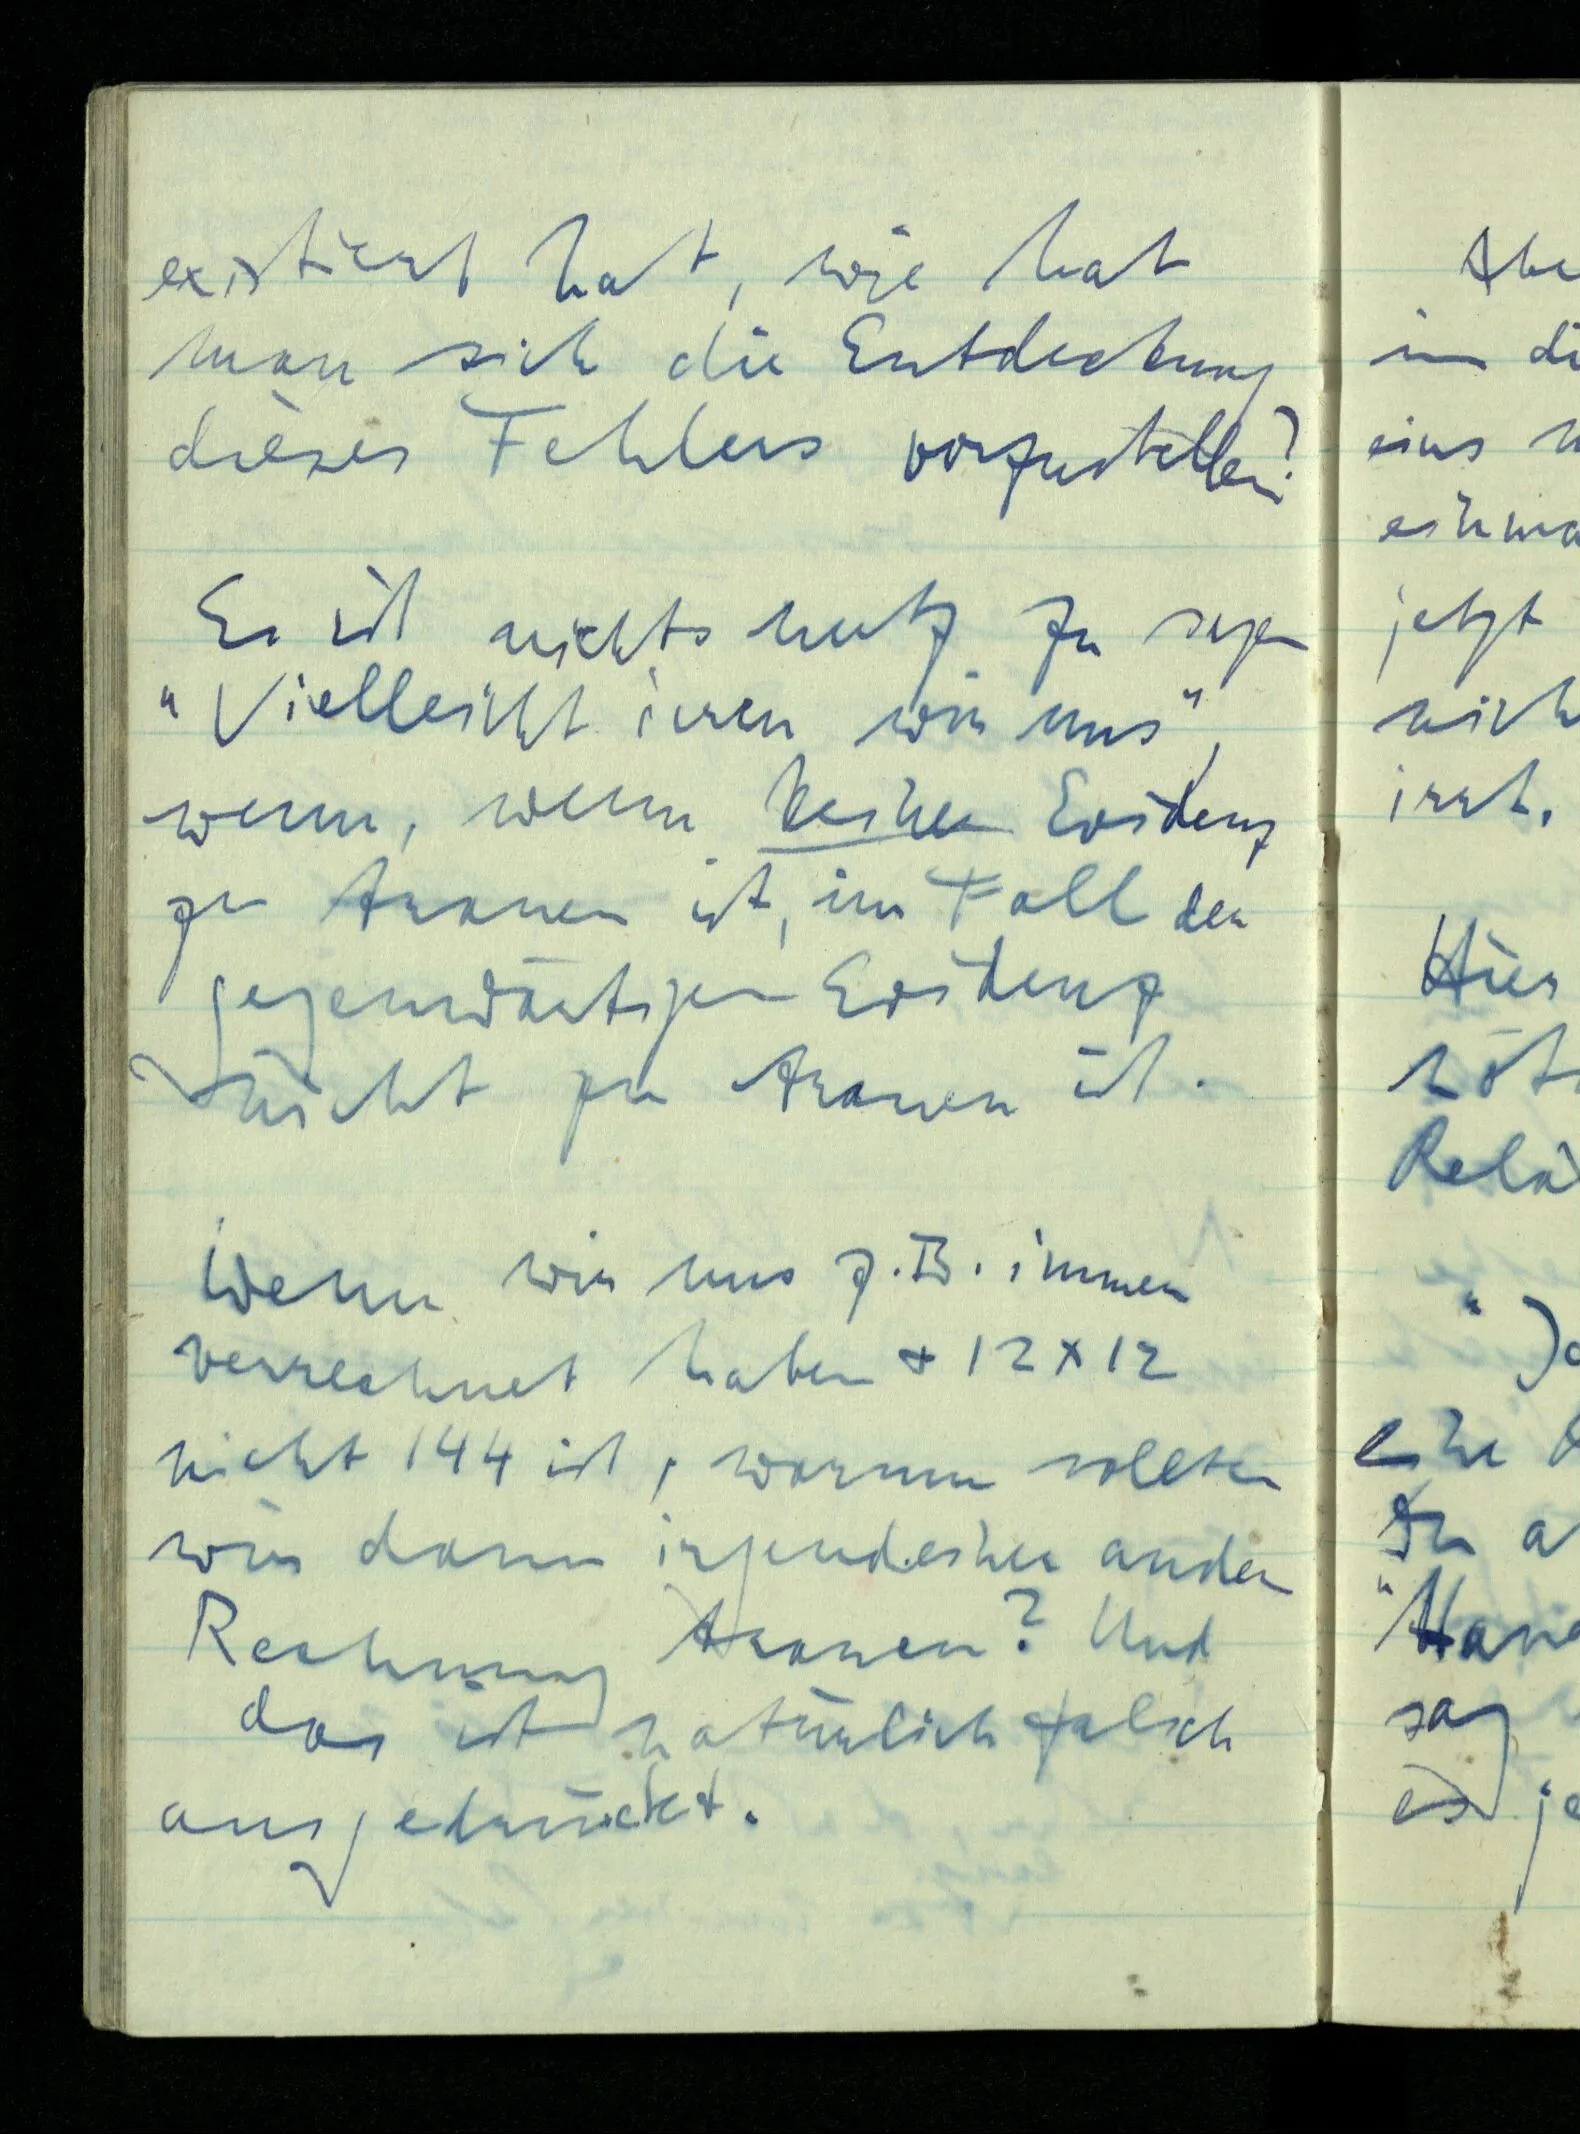 existiert hat, wie hat
man sich die Entdeckung
dieses Fehlers vorzustellen?
Es ist nichts nutz zu sagen
"Vielleicht irren wir uns",
wenn, wenn keiner Evidenz
zu trauen ist, im Fall der
gegenwärtigen Evidenz
nicht zu trauen ist.
Wenn wir uns z.B. immer
verrechnet haben & 12 x 12
nicht 144 ist, warum sollten
wir dann irgendeiner andern
Rechnung trauen? Und
das ist natürlich falsch
ausgedrückt.
in
eins
jetzt
irrt.
Hier
sag
es